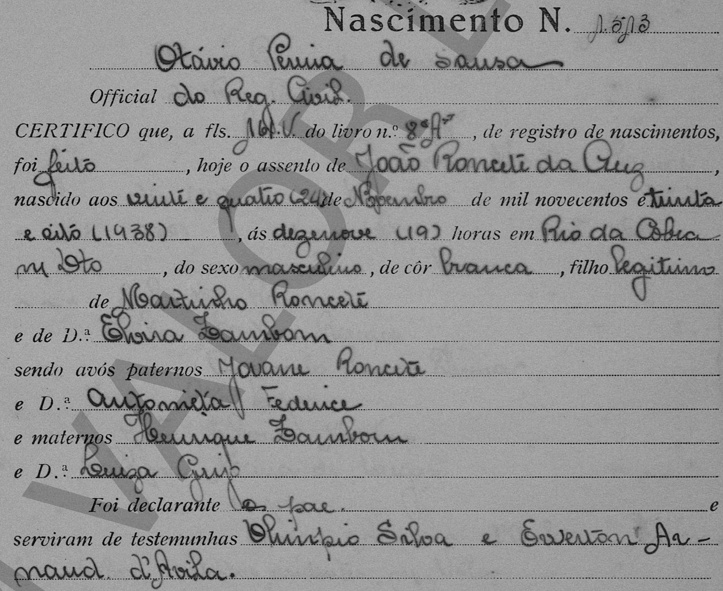 Nascimento N. 1.513
Otávio Pereira de Sausa
Official do Reg. Civil.
CERTIFICO que, a fls. do livro n.º 8 "A" , de registro de nascimentos,
foi feito , hoje o assento de João Ronceté da Cruz ,
nascido aos vinte e quatro (24) de Novembro de mil novecentos e trinta
e oito (1938) , ás dezenove (19) horas em Rio da Cobra
n/ Dto , do sexo masculino , de côr branca , filho legitimo
de Martinho Ronceté
e de D.ª Elvira Zambom
sendo avós paternos Jovane Ronceté
e D.ª Antonieta Federice
e maternos Henrique Zambom
e D.ª Luiza
Foi declarante o pae. e
serviram de testemunhas Olimpio Silva e Ewerton Ar-
naud d'Avila.
VALOR